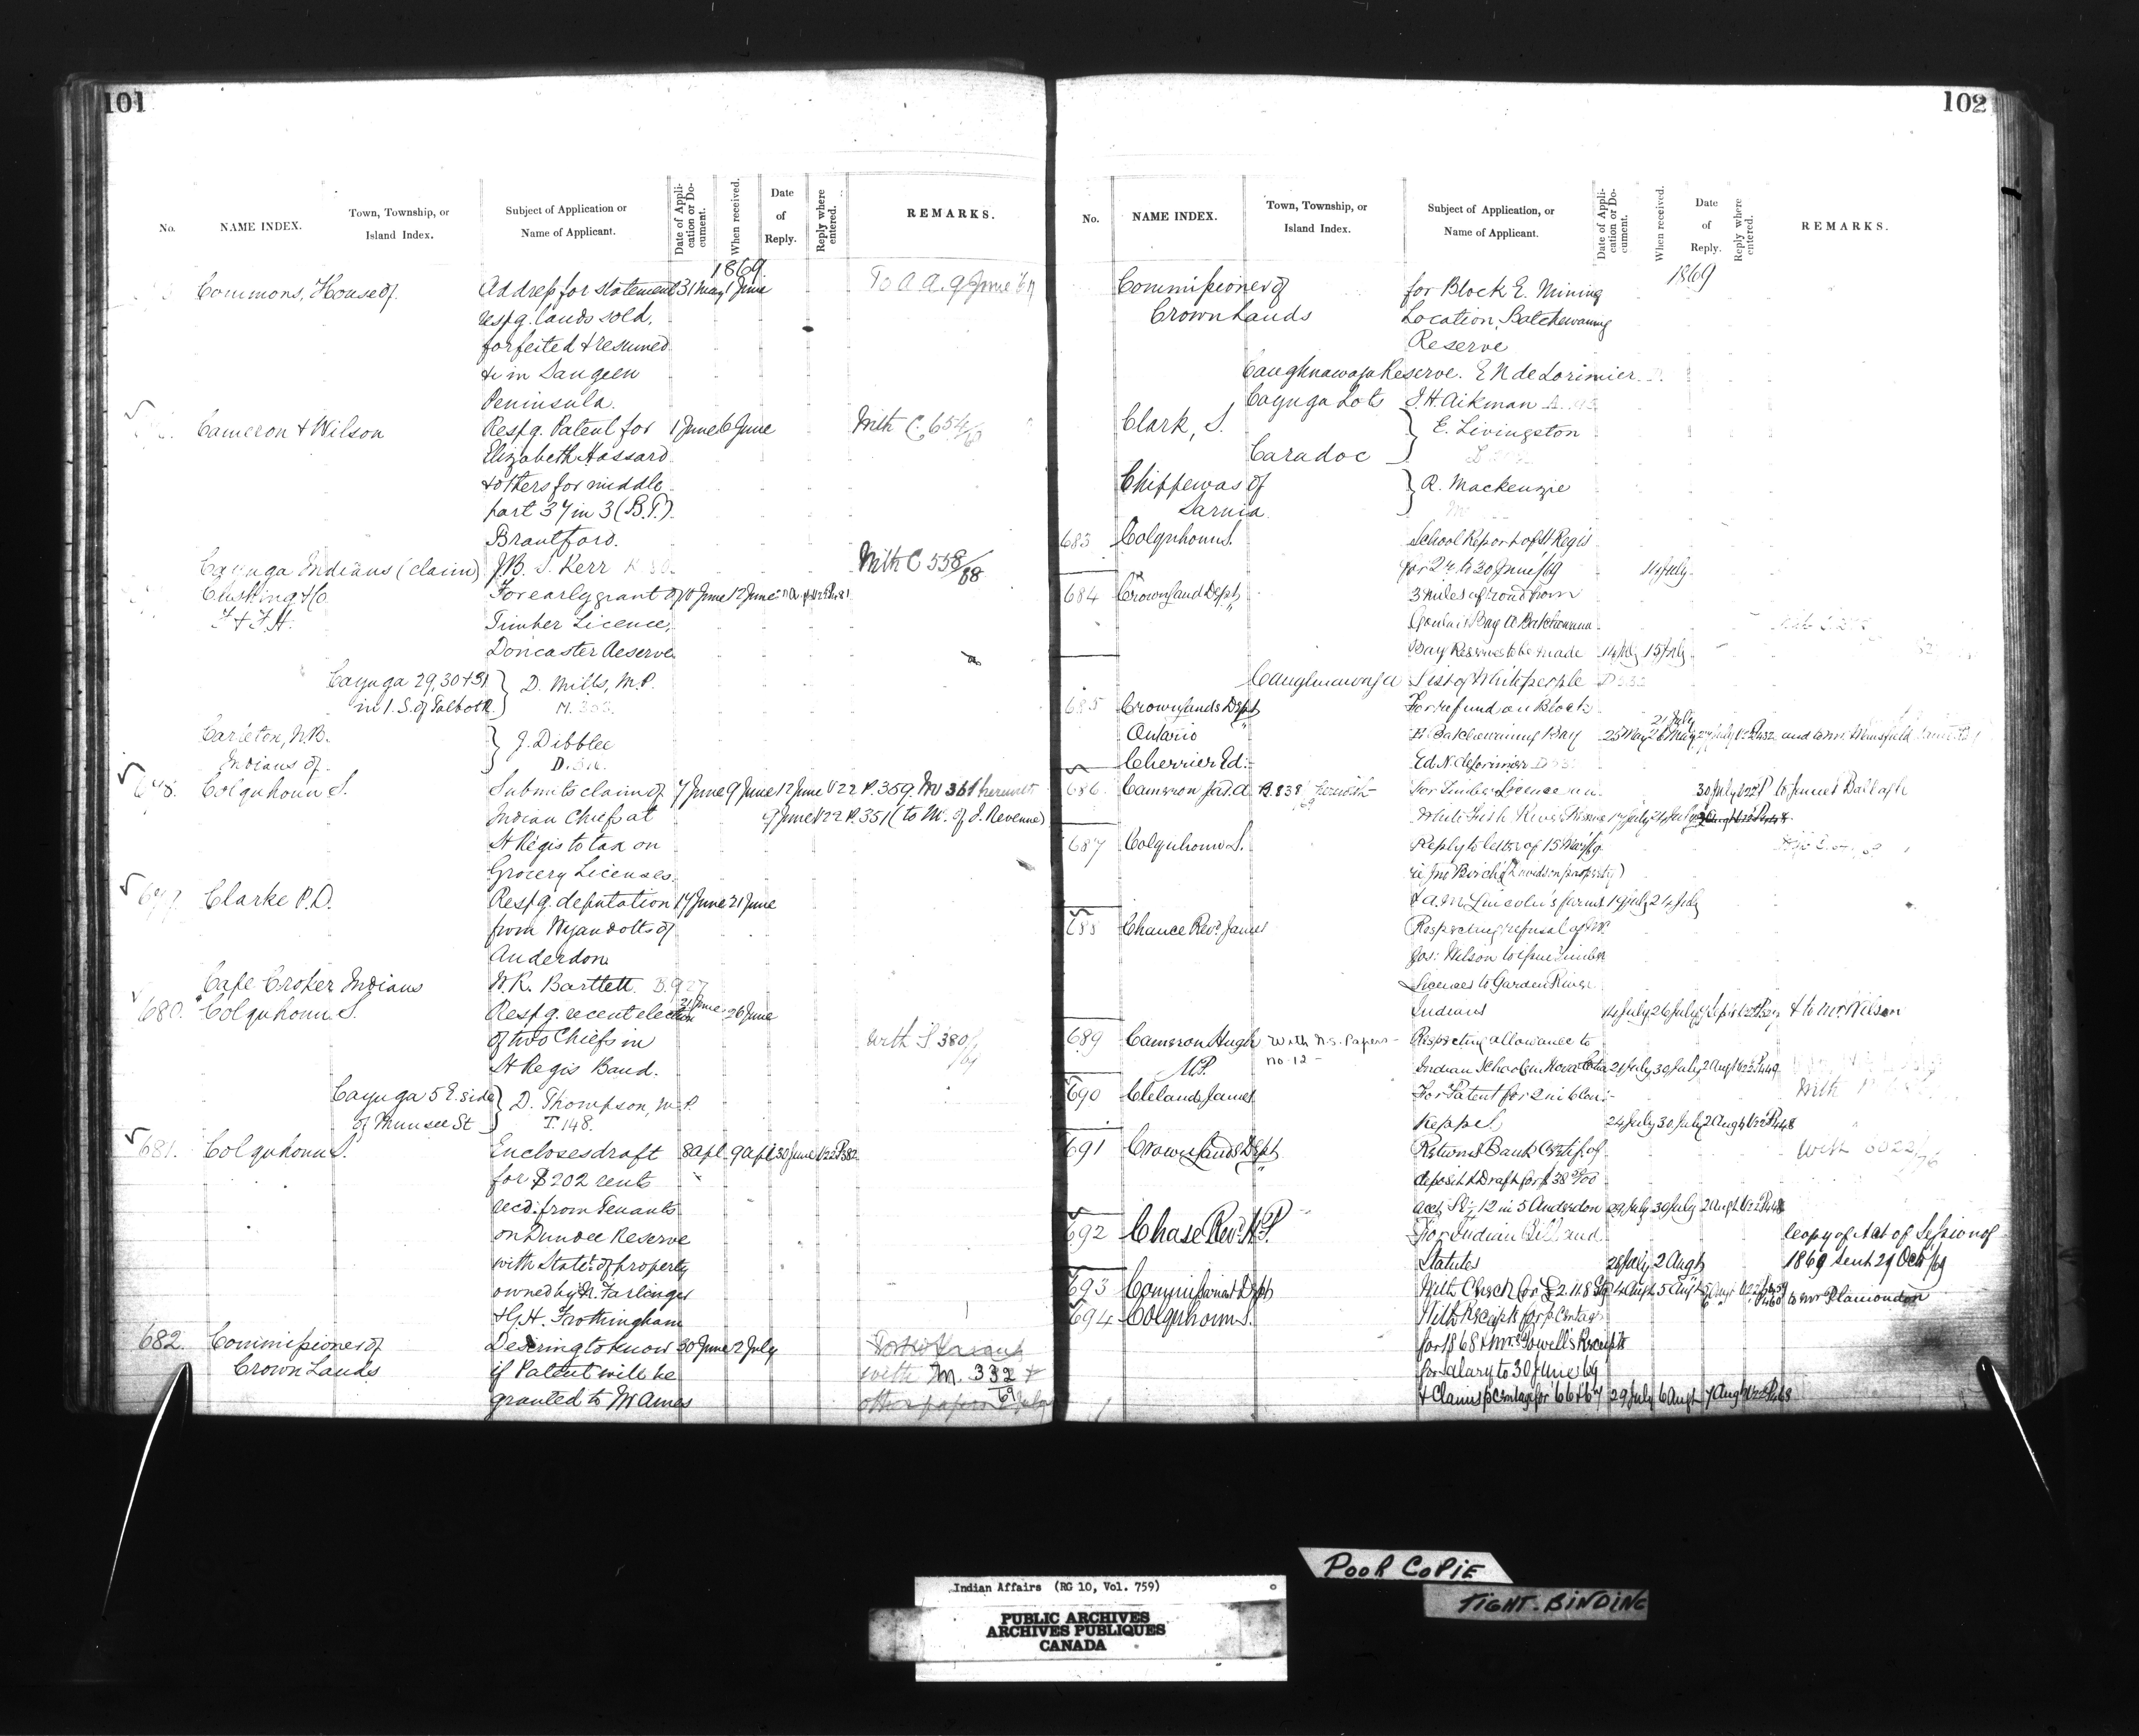 101
No.
NAME INDEX.
Town, Township, or Island Index.
Subject of Application or Name of Applicant.
Date of Appli-cation or Do-cument.
When received.
Date of Reply.
Reply where entered.
REMARKS.
1869
Commons, House of Address for Statement 31 May 1 June To A. A. G. June
respg. lands sold,
forfeited & resumed
&c in Saugeen
Peninsula.
Cameron & Wilson Respg. Patent for 1 June 6 June With C. 654
Elizabeth Hassard
& others for middle
part 37 in 3 (B.T.)
Brantford.
Cayuga Indians (claim) J.B. S. Kerr With C 558/68
Cushing & Co For early grant of 10 June 12 June
F & F. H. Timber Licence,
Doncaster Reserve
Cayuga 29, 30 & 31 } D. Mills, M.P.
in 1. S. of Talbot R.
Carleton, N.B. } J. Dibblee
Indians of
Colquhoun S. Submits claim of 7 June 9 June 12 June V22 P. 359. herewith
Indian Chiefs at 9 June V22 P. 351 (to M. of I. Revenue)
St Regis to tax on
Grocery Licenses.
Clarke P. D. Respg. deputation 17 June 21 June
from Wyandotts of
Anderdon
Cape Croker Indians W. R. Bartlett B. 927
680. Colquhoun S. Respg. recent election 21 June 26 June
of two Chiefs in with S 380
St Regis Band.
Cayuga 5 E. side } D. Thompson, M.P.
of Munsee St T. 148.
681. Colquhoun S. Encloses draft 8 apl 9 apl 30 June V22 P382
for $202 cents
recd. from Tenants
on Dundee Reserve
with Statet. of property
owned by Dr. Farlinger
& G. H. Frothingham
682. Commissioner of Desiring to know 30 June 2 July
Crown Lands if Patent will be with M. 332 &
granted to Mr Ames other papers
102
No.
NAME INDEX.
Town, Township, or Island Index.
Subject of Application, or Name of Applicant.
Date of Appli-cation or Do-cument.
When received.
Date of Reply.
Reply where entered.
REMARKS.
1869
Commissioner of for Block E. Mining
Crown Lands Location, Batchewaung
Reserve
Caughnawaga Reserve. E N de Lorimier
Cayuga Lots J. H. Aikman
Clark, S. } E. Livingston
Caradoc
Chippewas of } R. Mackenzie
Sarnia
683 Colquhoun S. School Report of St Regis
for 2 qr. to 30 June/69 14 July
684 Crown Land Dept, 3 miles of road from
Goulais Bay
Bay Reserves to be made 14 July 15 July
Caughnawaga List of White people
685 Crown Lands Dept For refund on Block
21 July
Ontario H Batchewaning Bay 25 May 26 May
Cherrier Ed. Ed. N. deLorimier
686 Cameron Jas. A B. 838 herewith For Timber License on 30 July
White Fish River
687 Colquhoun S. Reply to letter of 15 May/69
re Jno Birch (Davidson property)
& A. M. Lincoln's farms 19 July 21 July
688 Chance Revd. James Respecting refusal of Mr
Jos: Wilson to issue Timber
Licenses to Garden River
Indians 14 July 26 July & to Mr Wilson
689 Cameron Hugh With N.S. Papers Respecting allowance to
M.P. No. 12 Indian School in Nova Scotia 21 July 30 July 2 Augt V22 P449
690 Cleland James For Patent for 2 in 6 Con:
Keppel 24 July 30 July 2 Augt V22 P448
691 Crown Lands Dept Returns Bank Certif. of With 3022/76
deposit & Draft for $38
acct 12 in 5 Anderdon 29 July 30 July 2 Augt V22 P448
692 Chase Revd. H.P. For Indian Bill and Copy of Act of Session of
Statutes 28 July 2 Augt 1869 sent 29 Oct/69
693 Commissariat Dept With Check for £2.11.8 Stg 4 Augt 5 Augt to Mr Plamondon
694 Colquhoun S. With Receipts for p Centage
for 1868 & Mrs. Powell's Receipt
for salary to 30 June 69
& Claims p Centage for '66 & 67 29 July 6 Augt 7 Augt V22 P468
Indian Affairs (RG 10, Vol. 759)
PUBLIC ARCHIVES
ARCHIVES PUBLIQUES
CANADA
POOR COPIE
TIGHT-BINDING